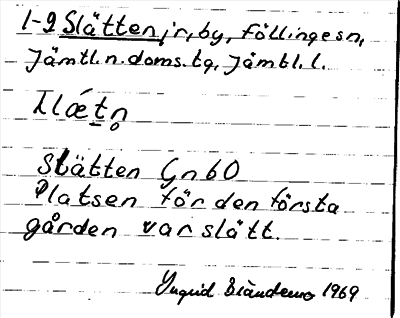 1-2 Slätten, jr, by, Föllinge sn,
Jämtl. n. doms. tg, Jämtl. l.
Slätten GnbO
Platsen för den första
gården var slätt.
Ingrid 1969